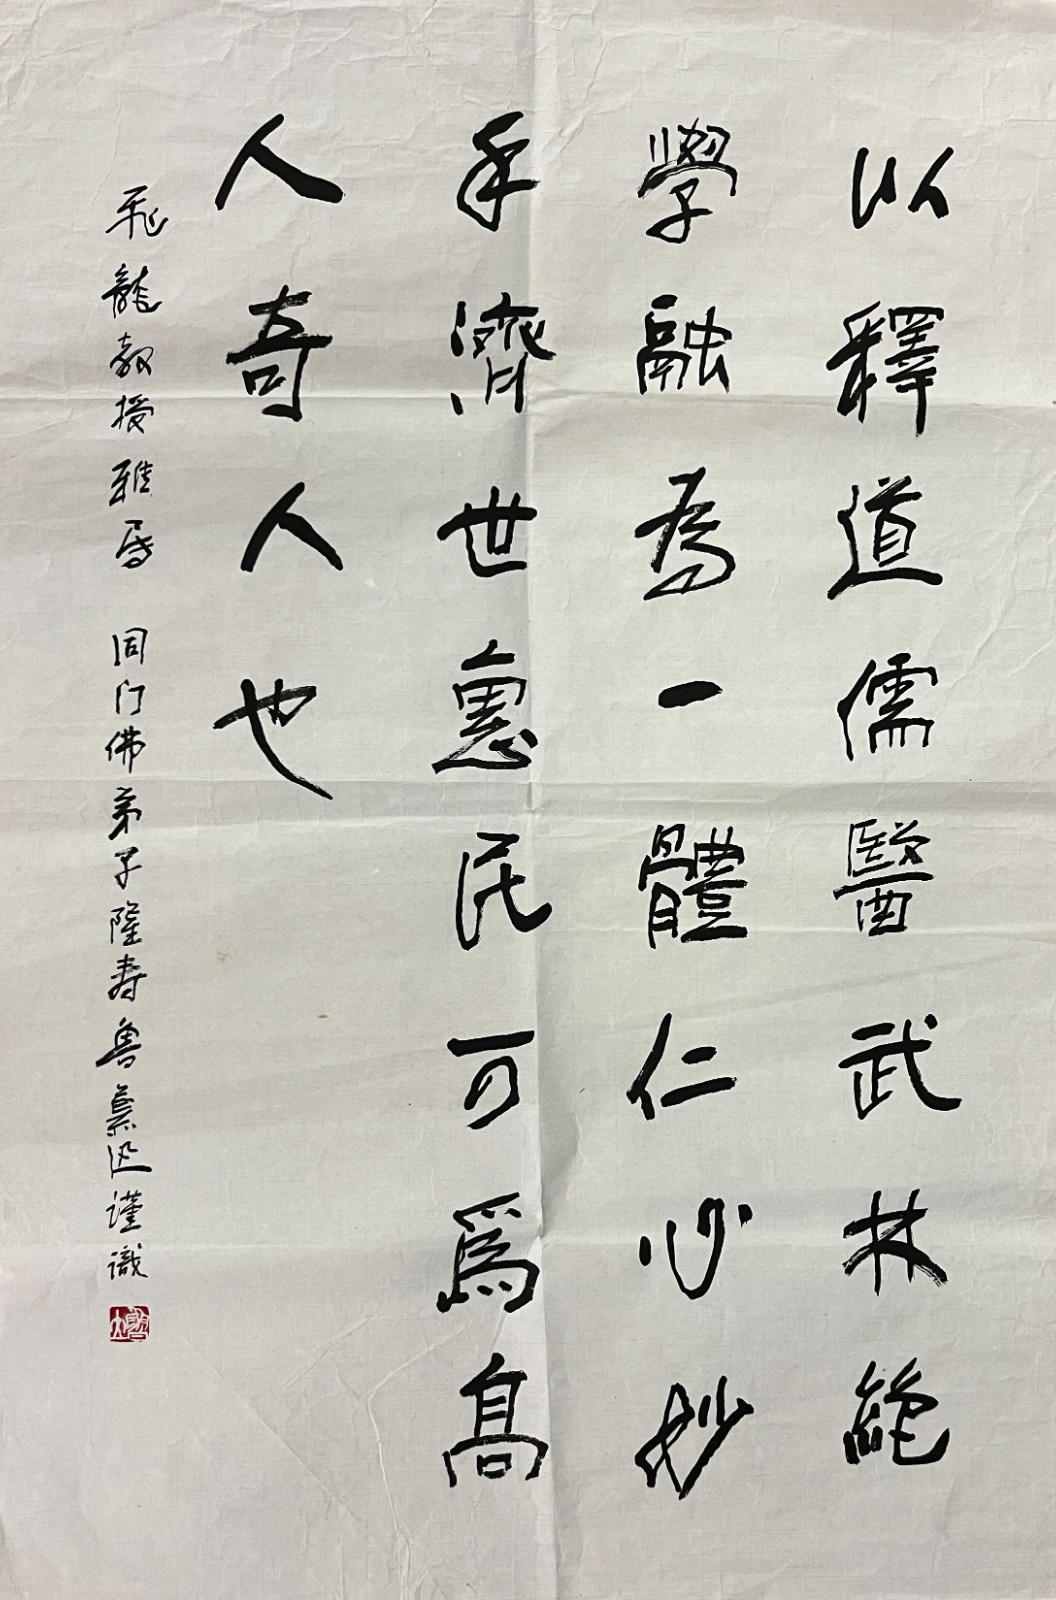 以釋道儒醫武林絕
學融為一體仁心妙
手濟世惠民可為高
人奇人也
飛龍教授雅屬 同门佛弟子隆寿魯慕迅谨識